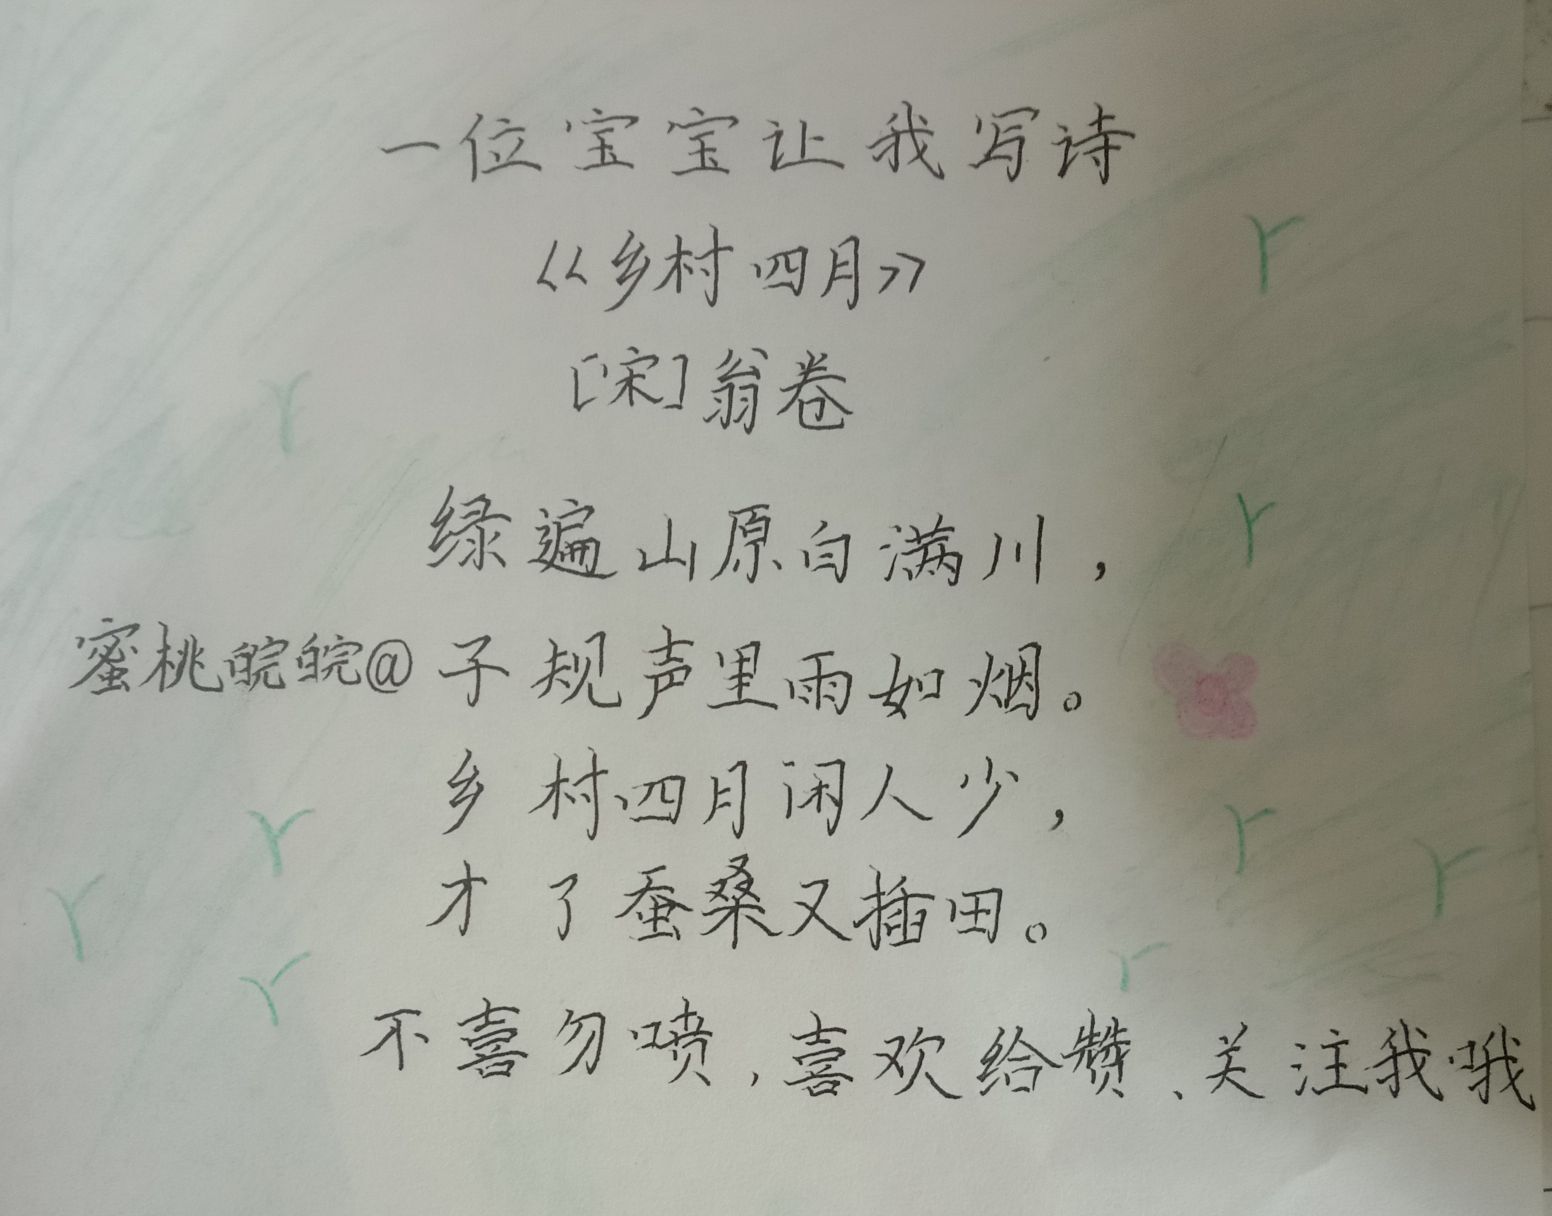 一位宝宝让我写诗
《乡村四月》
[宋]翁卷
绿遍山原白满川，
蜜桃皖皖@
子规声里雨如烟。
乡村四月闲人少，
才了蚕桑又插田。
不喜勿喷，喜欢给赞、关注我哦